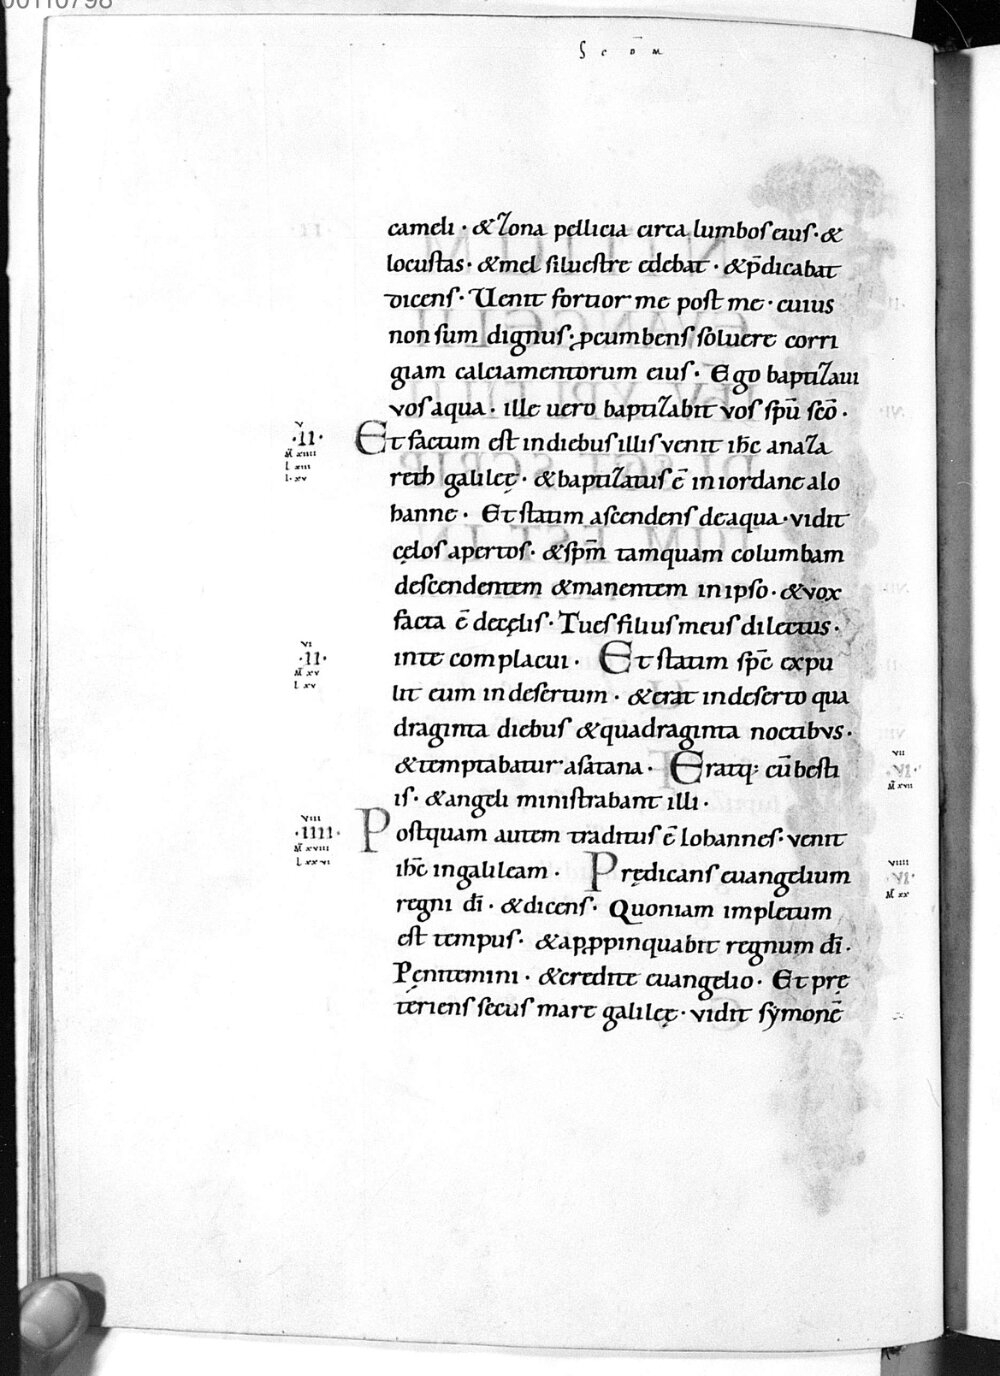 00110798
S c d̄ m
cameli · & zona pellicia circa lumbos eius · &
locustas · & mel siluestre edebat · & p̄dicabat
dicens · Uenit fortior me post me · cuius
non sum dignus ꝓcumbens soluere corri
giam calciamentorum eius · Ego baptizaui
vos aqua · ille uero baptizabit vos spū scō ·
Et factum est in diebus illis venit ihc̄ anaza
reth galileę · & baptizatus ē in iordane a Io
hanne · Et statim ascendens de aqua · vidit
cęlos apertos · & spm̄ tamquam columbam
descendentem & manentem in ipso · & vox
facta ē de cęlis · Tu es filius meus dilectus ·
in te complacui · Et statim spc̄ expu
lit eum in desertum · & erat in deserto qua
draginta diebus & quadraginta noctibus ·
& temptabatur a satana · Eratq; cū besti
is · & angeli ministrabant illi ·
Postquam autem traditus ē Iohannes · venit
ihc̄ in galileam · Prędicans euangelium
regni dī · & dicens · Quoniam impletum
est tempus · & apꝓpinquabit regnum dī ·
Pęnitemini · & credite euangelio · Et prę
teriens secus mare galileę · vidit symonē
v
·II·
M̄ xiiii
L xiii
I · xv
vi
·II·
M̄ xv
L xv
viii
·IIII·
M̄ xviii
L xxvi
vii
·VI·
M̄ xvii
viiii
·VI·
M̄ xx